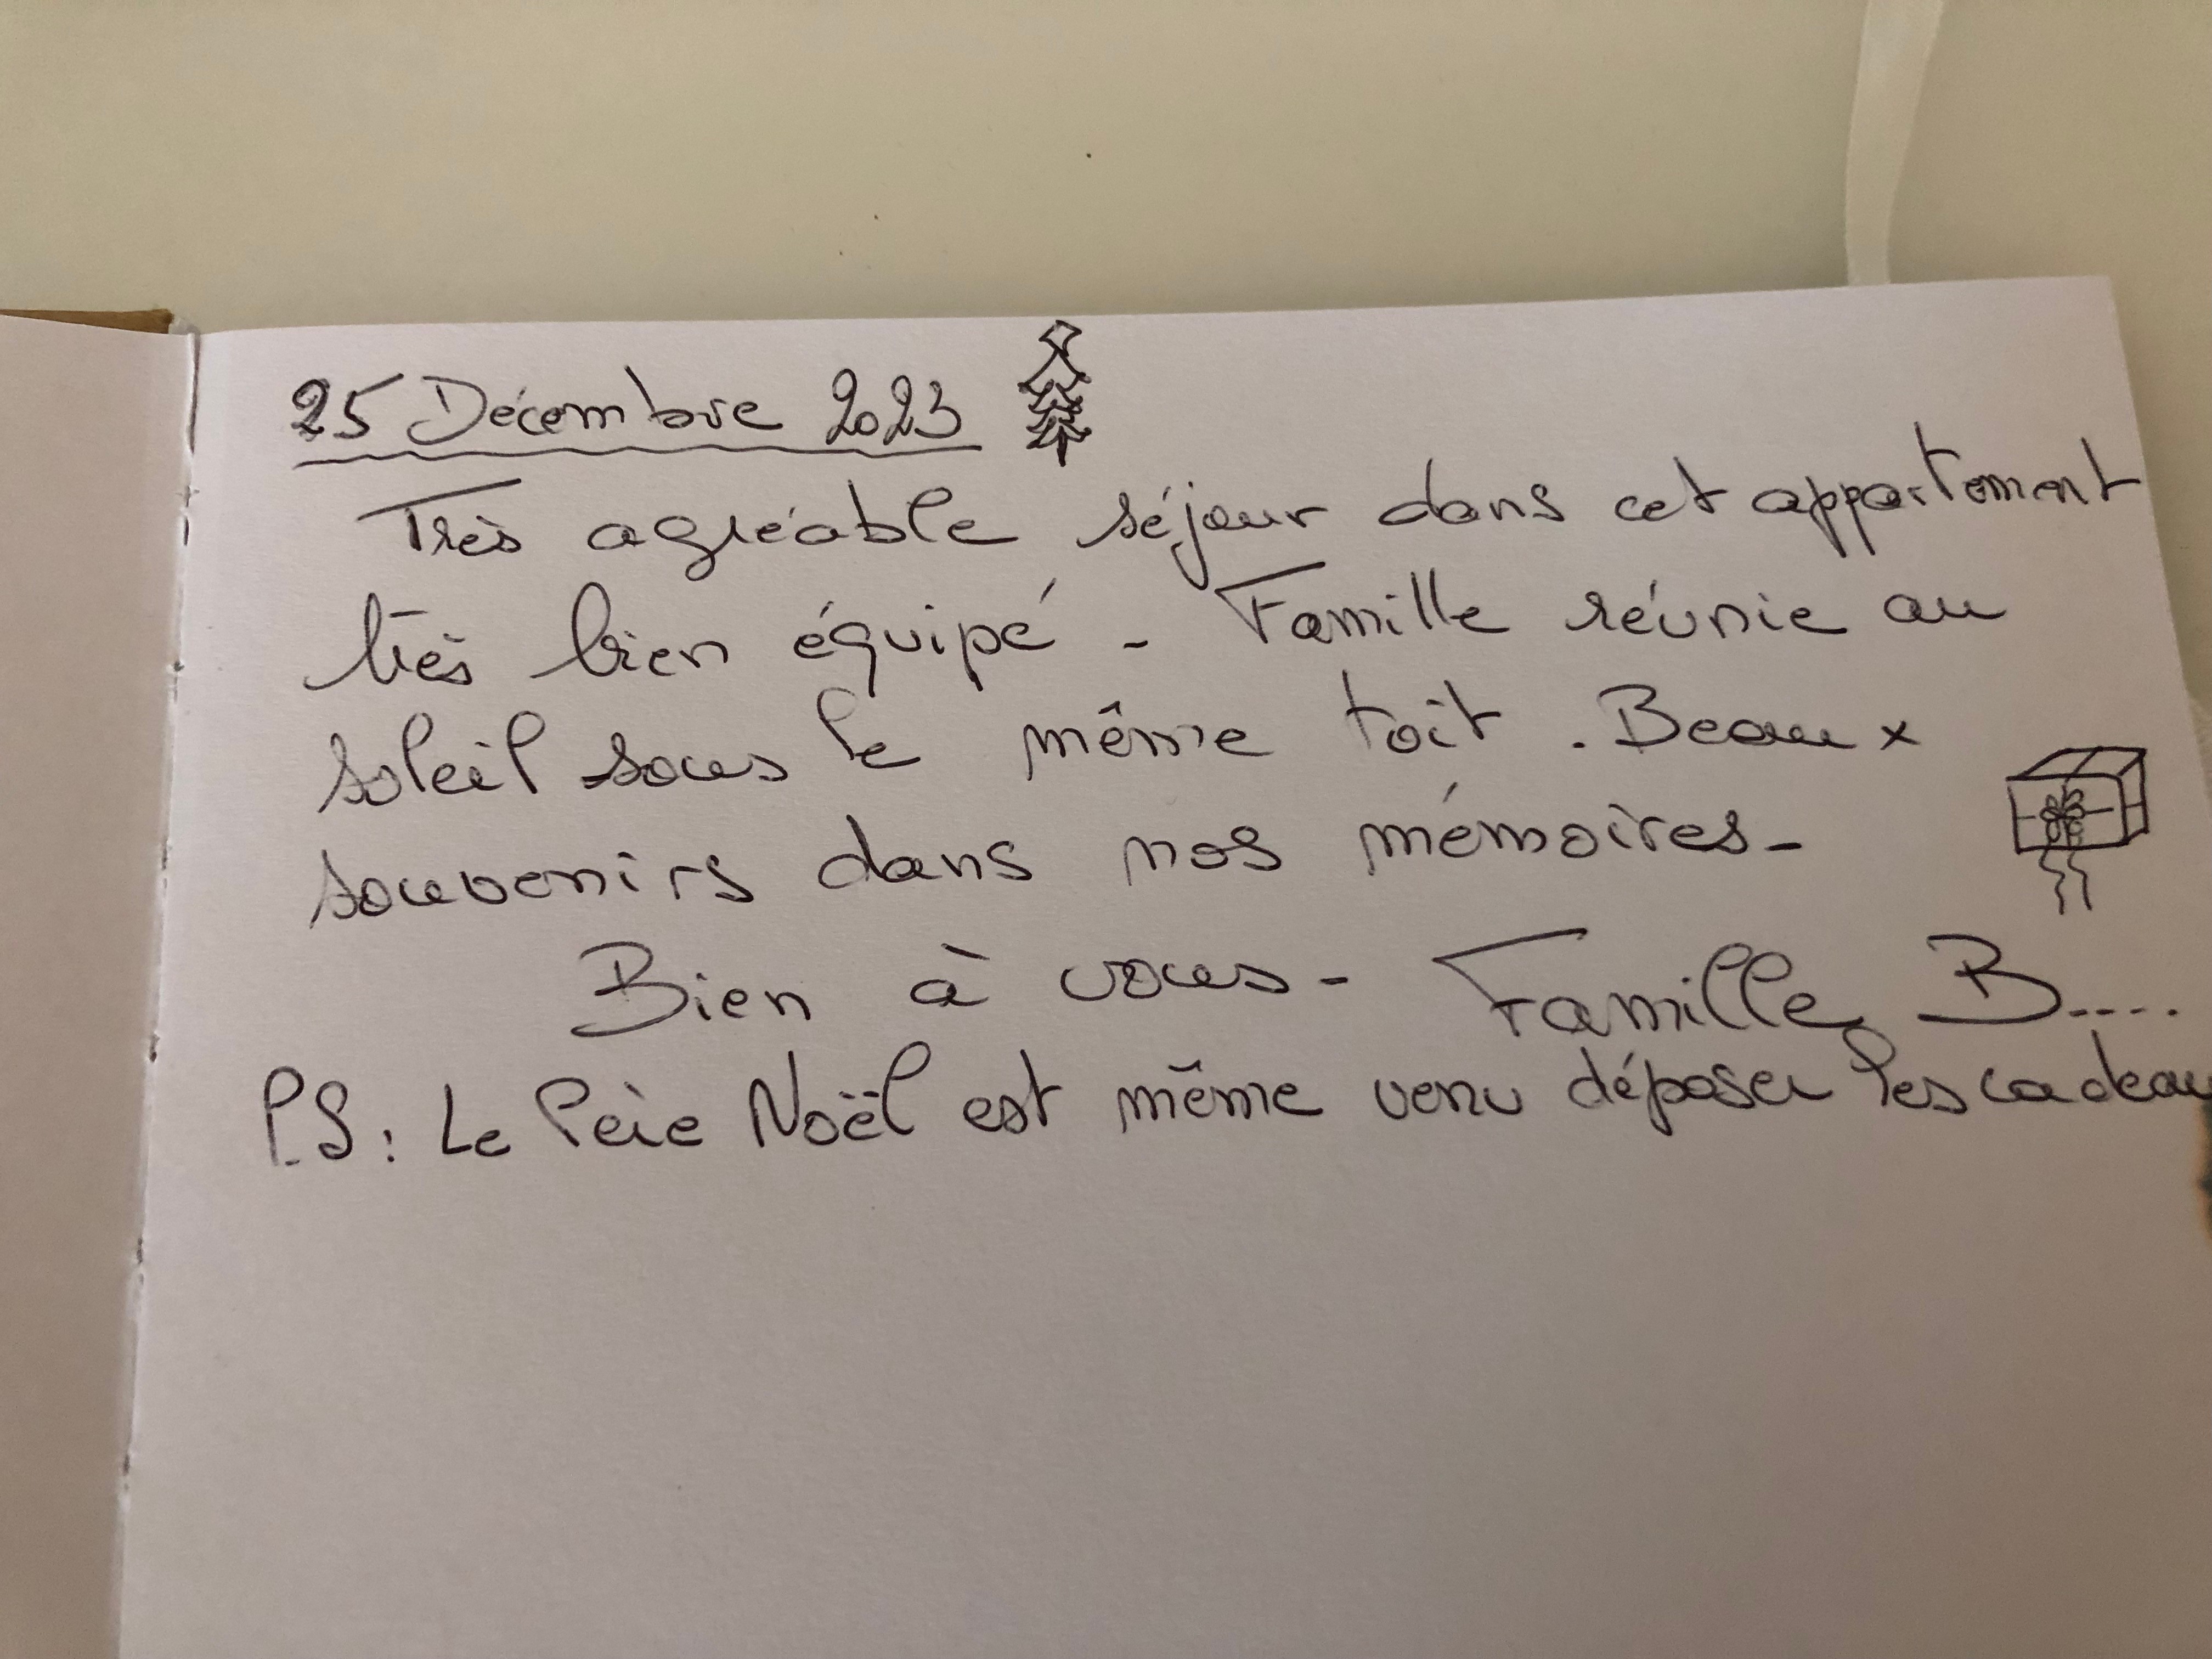 25 Décembre 2023
Très agréable séjour dans cet appartement
très bien équipé - Famille réunie au
soleil sous le même toit . Beaux
souvenirs dans nos mémoires -
Bien à vous - Famille B.....
P.S : Le Père Noël est même venu déposer les cadeau